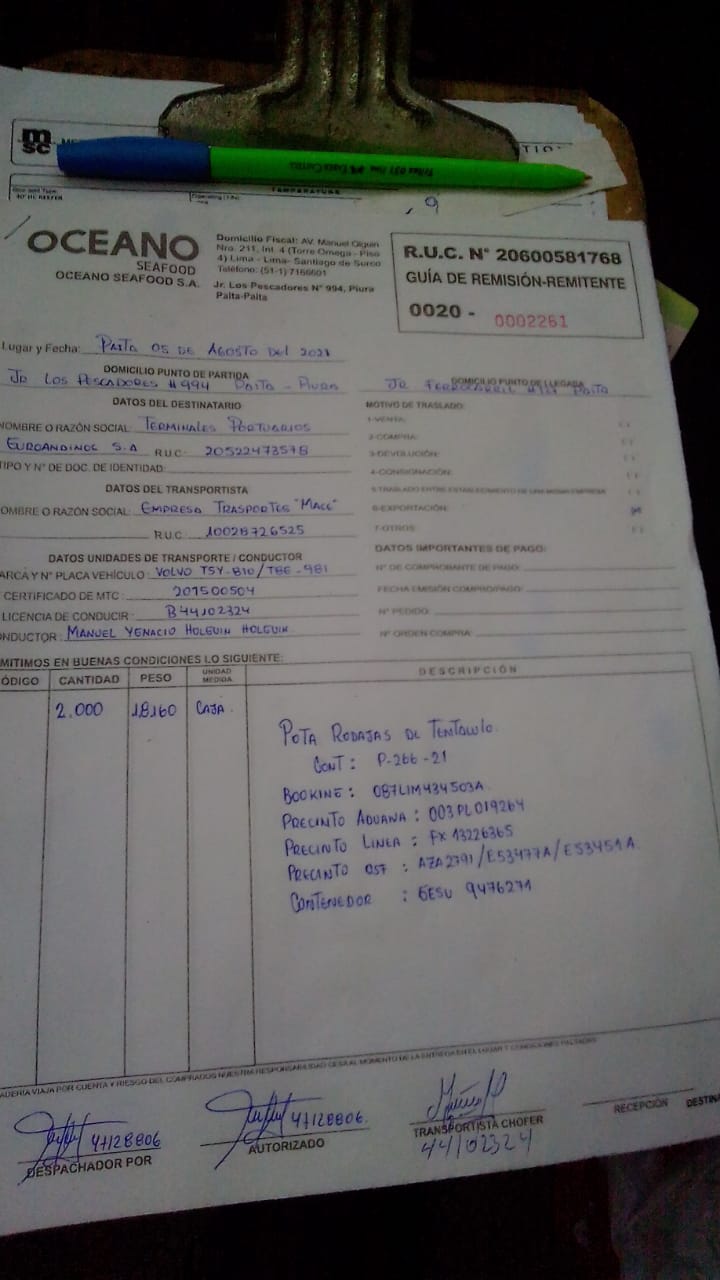 msc
TEMPERATURE
40' HC REEFER
OCEANO
SEAFOOD
OCEANO SEAFOOD S.A.
Domicilio Fiscal: AV. Manuel Olguin
Nro. 211, Int. 4 (Torre Omega - Piso
4) Lima - Lima- Santiago de Surco
Teléfono: (51-1) 7166601
Jr. Los Pescadores N° 994, Piura
Paita-Paita
R.U.C. N° 20600581768
GUÍA DE REMISIÓN-REMITENTE
0020 - 0002261
Lugar y Fecha: PAITA 05 DE AGOSTO DEL 2021
DOMICILIO PUNTO DE PARTIDA
JR LOS PESCADORES #994 PAITA - PIURA
DOMICILIO PUNTO DE LLEGADA
JR FERROCARRIL PAITA
DATOS DEL DESTINATARIO
NOMBRE O RAZÓN SOCIAL: TERMINALES PORTUARIOS
EUROANDINOS S.A R.U.C: 20522473578
TIPO Y N° DE DOC. DE IDENTIDAD:
DATOS DEL TRANSPORTISTA
OMBRE O RAZÓN SOCIAL: EMPRESA TRASPORTES "MACC"
R.U.C: 10028726525
DATOS UNIDADES DE TRANSPORTE / CONDUCTOR
ARCA Y N° PLACA VEHÍCULO: VOLVO TSY-810/TBE-981
CERTIFICADO DE MTC: 201500504
LICENCIA DE CONDUCIR: B44102324
ONDUCTOR: MANUEL YGNACIO HOLGUIN HOLGUIN
MOTIVO DE TRASLADO:
1-VENTA:
2-COMPRA:
3-DEVOLUCIÓN:
4-CONSIGNACIÓN:
5-TRASLADO ENTRE ESTABLECIMIENTO DE UNA MISMA EMPRESA
6-EXPORTACIÓN:
7-OTROS:
DATOS IMPORTANTES DE PAGO:
N° DE COMPROBANTE DE PAGO:
FECHA EMISIÓN COMPROPAGO:
N° PEDIDO:
N° ORDEN COMPRA:
MITIMOS EN BUENAS CONDICIONES LO SIGUIENTE:
ÓDIGO CANTIDAD PESO UNIDAD MEDIDA DESCRIPCIÓN
2.000 18160 CAJA
POTA RODAJAS DE TENTACULO
CONT: P-266-21
BOOKING: 087LIM434503A
PRECINTO ADUANA: 003PL019264
PRECINTO LINEA: FX 13226365
PRECINTO OSF: AZA2791/E53477A/E53451A
CONTENEDOR: GESU 9476271
ADERÍA VIAJA POR CUENTA Y RIESGO DEL COMPRADOS NUESTRA RESPONSABILIDAD CESA AL MOMENTO DE LA ENTREGA EN EL LUGAR Y CONDICIONES PACTADAS
47128806
DESPACHADOR POR
47128806
AUTORIZADO
TRANSPORTISTA CHOFER
44102324
RECEPCIÓN DESTINA